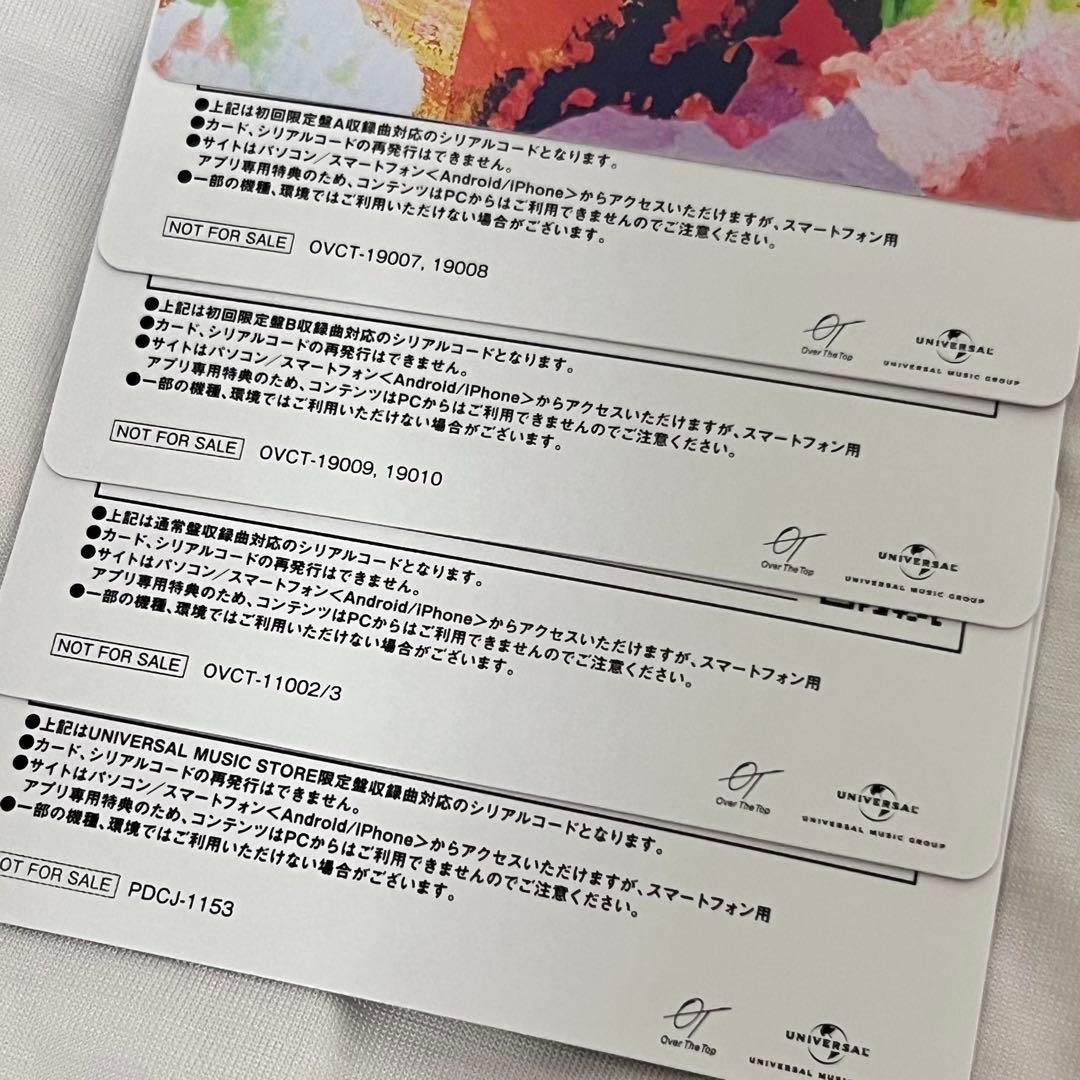 ●上記は初回限定盤A収録曲対応のシリアルコードとなります。
●カード、シリアルコードの再発行はできません。
●サイトはパソコン／スマートフォン<Android/iPhone>からアクセスいただけますが、スマートフォン用
アプリ専用特典のため、コンテンツはPCからはご利用できませんのでご注意ください。
●一部の機種、環境ではご利用いただけない場合がございます。
NOT FOR SALE OVCT-19007, 19008
OT
Over The Top
UNIVERSAL
UNIVERSAL MUSIC GROUP
●上記は初回限定盤B収録曲対応のシリアルコードとなります。
●カード、シリアルコードの再発行はできません。
●サイトはパソコン／スマートフォン<Android/iPhone>からアクセスいただけますが、スマートフォン用
アプリ専用特典のため、コンテンツはPCからはご利用できませんのでご注意ください。
●一部の機種、環境ではご利用いただけない場合がございます。
NOT FOR SALE OVCT-19009, 19010
OT
Over The Top
UNIVERSAL
UNIVERSAL MUSIC GROUP
●上記は通常盤収録曲対応のシリアルコードとなります。
●カード、シリアルコードの再発行はできません。
●サイトはパソコン／スマートフォン<Android/iPhone>からアクセスいただけますが、スマートフォン用
アプリ専用特典のため、コンテンツはPCからはご利用できませんのでご注意ください。
●一部の機種、環境ではご利用いただけない場合がございます。
NOT FOR SALE OVCT-11002/3
OT
Over The Top
UNIVERSAL
UNIVERSAL MUSIC GROUP
●上記はUNIVERSAL MUSIC STORE限定盤収録曲対応のシリアルコードとなります。
●カード、シリアルコードの再発行はできません。
●サイトはパソコン／スマートフォン<Android/iPhone>からアクセスいただけますが、スマートフォン用
アプリ専用特典のため、コンテンツはPCからはご利用できませんのでご注意ください。
●一部の機種、環境ではご利用いただけない場合がございます。
OT FOR SALE PDCJ-1153
OT
Over The Top
UNIVERSAL
UNIVERSAL MUS